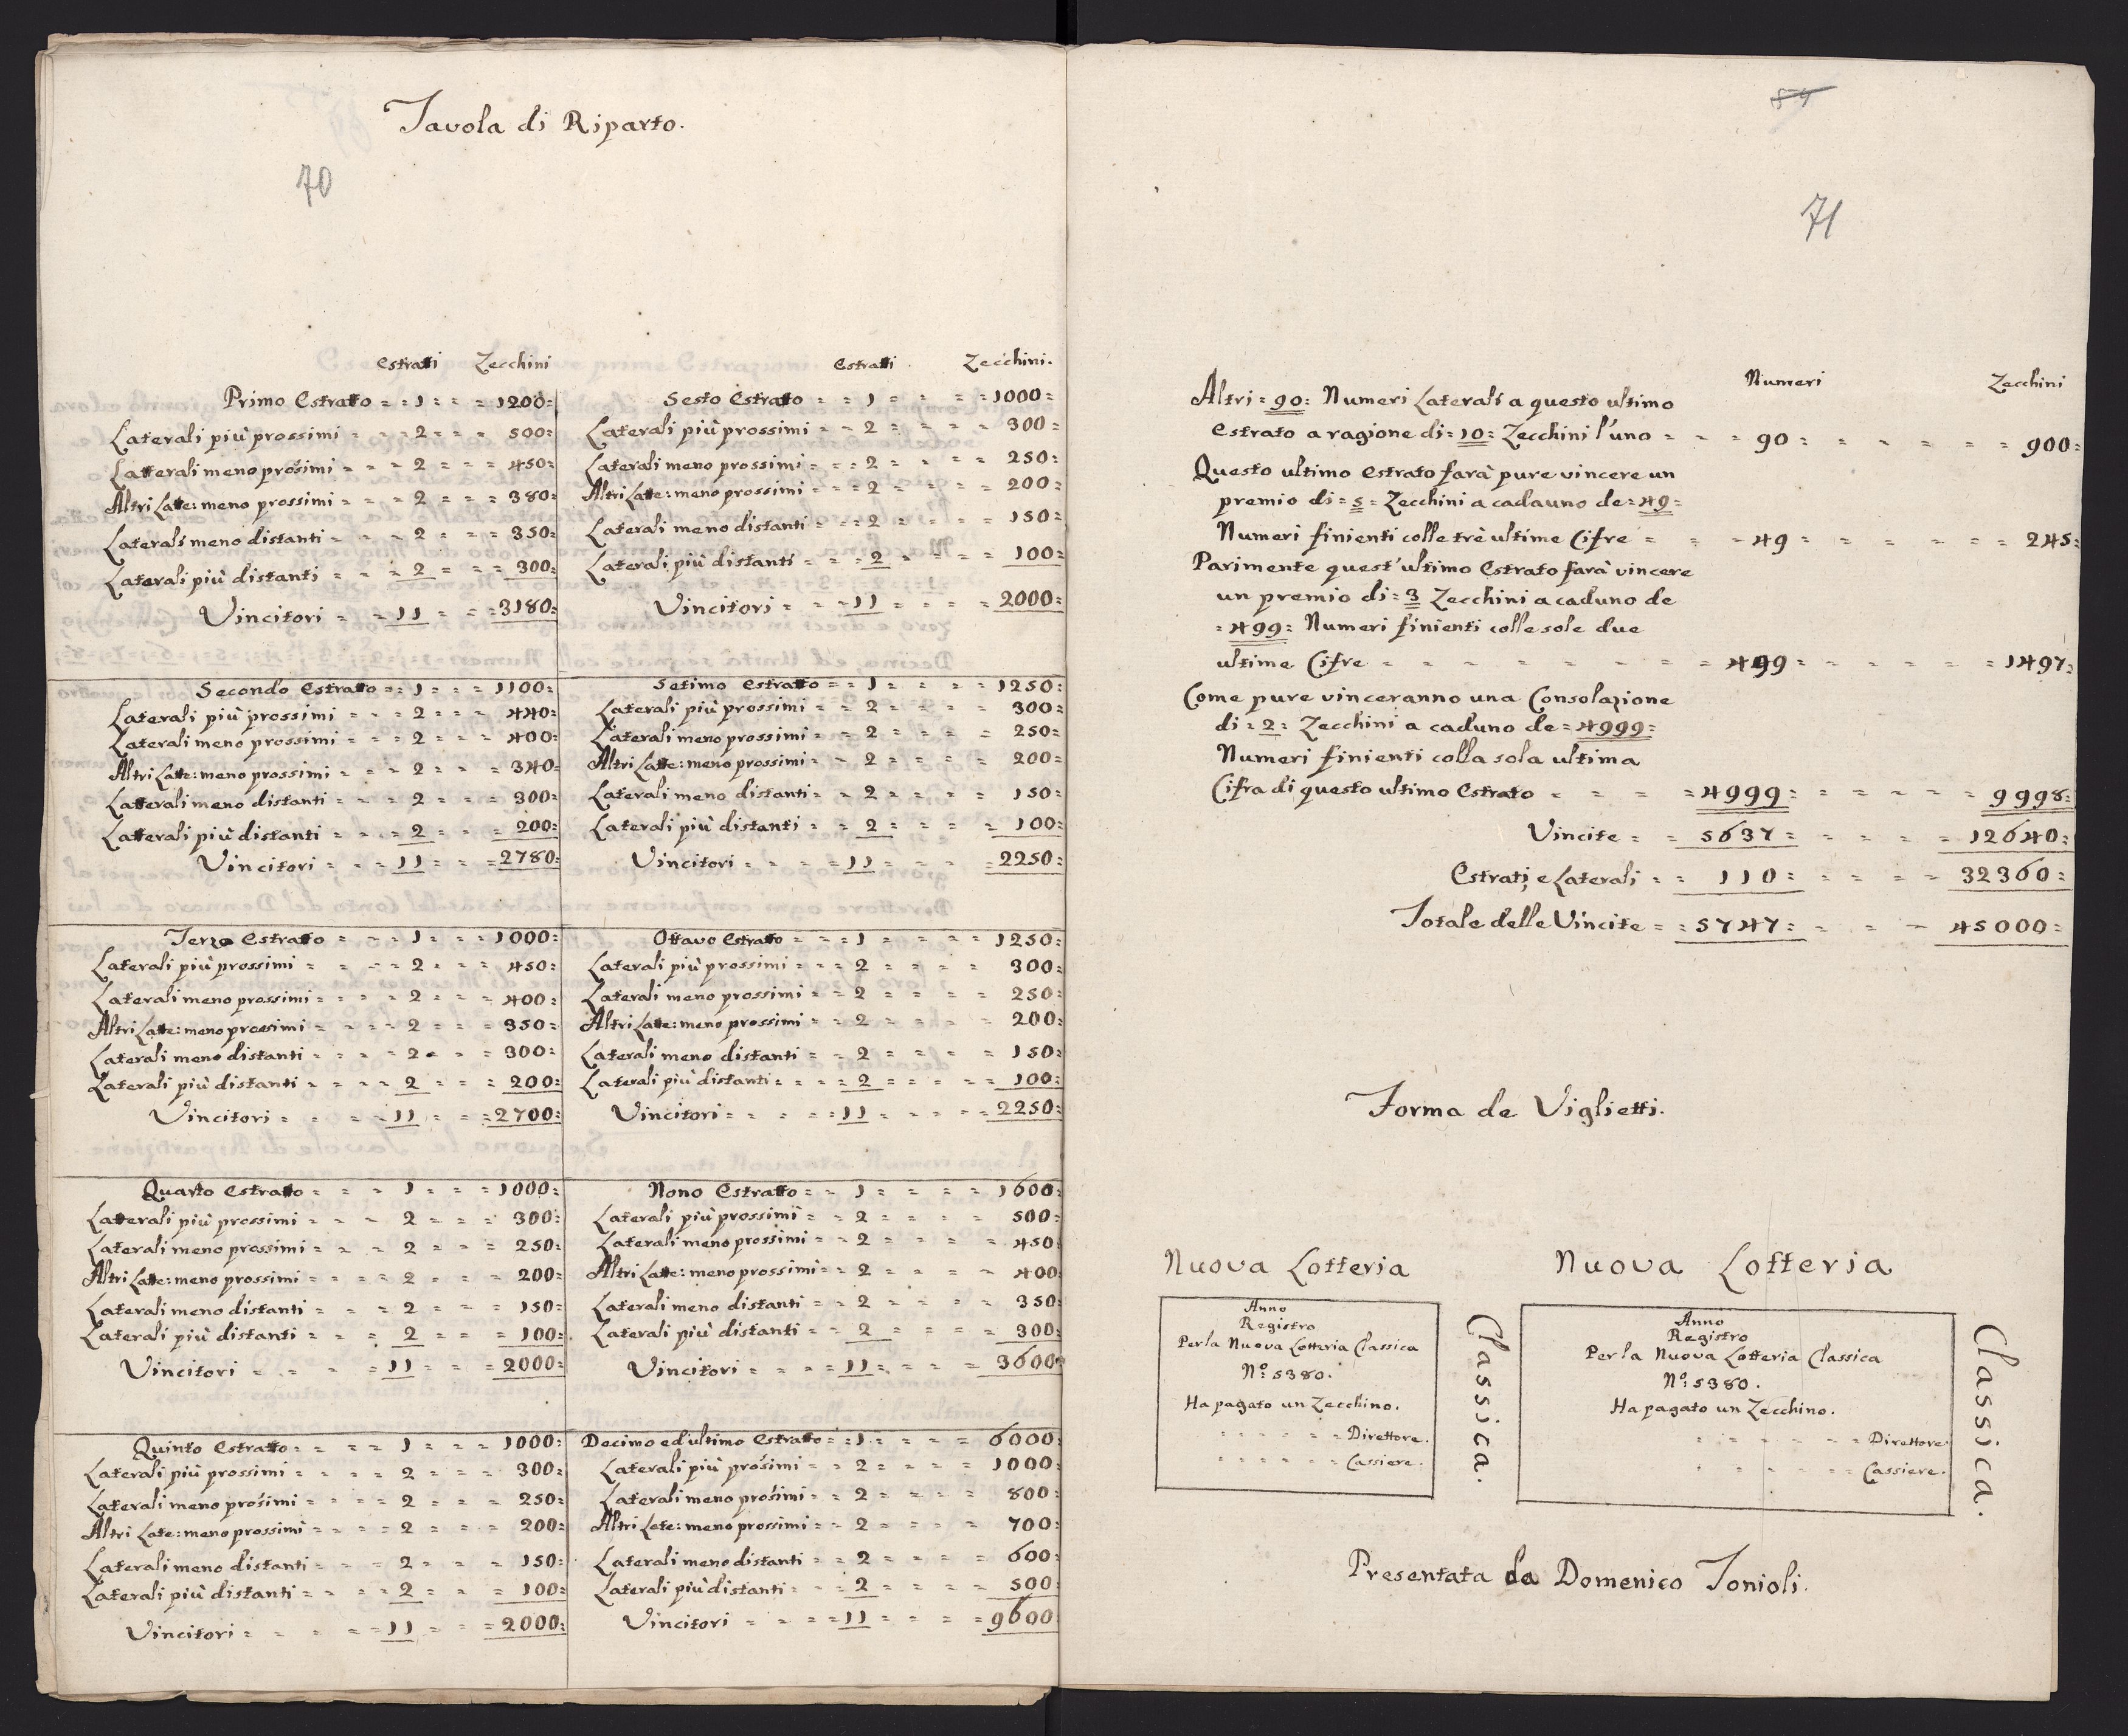 Tavola di Riparto.
70
Estratti Zecchini
Primo Estratto = = 1 = = = 1200=
Laterali più prossimi = = = 2 = = = 500=
Latterali meno prosimi = = = 2 = = = 450=
Altri Latte: meno prossimi = = = 2 = = = 380=
Laterali meno distanti = = = 2 = = = 350=
Laterali più distanti = = = 2 = = = 300=
Vincitori = = 11 = = = 3180=
Secondo Estratto = = 1 = = = 1100=
Laterali più prossimi = = = 2 = = = 440=
Laterali meno prossimi = = = 2 = = = 400=
Altri Latte: meno prossimi = = = 2 = = = 340=
Latterali meno distanti = = = 2 = = = 300=
Latterali più distanti = = = 2 = = = 200=
Vincitori = = = 11 = = = 2780=
Terzo Estratto = = = 1 = = = 1000=
Laterali più prossimi = = = 2 = = = 450=
Laterali meno prossimi = = = = 2 = = = 400=
Altri Latte: meno prossimi = = = = 2 = = = 350=
Laterali meno distanti = = = = 2 = = = 300=
Laterali più distanti = = = = 2 = = = 200=
Vincitori = = = = 11 = = = 2700=
Quarto Estratto = = = 1 = = = 1000=
Latterali più prossimi = = = 2 = = = 300=
Laterali meno prossimi = = = 2 = = = 250=
Altri Latte: meno prossimi = = = = 2 = = = 200=
Laterali meno distanti = = = 2 = = = 150=
Laterali più distanti = = = 2 = = = 100=
Vincitori = = = = 11 = = = 2000=
Quinto Estratto = = = = 1 = = = 1000=
Laterali più prossimi = = = = 2 = = = 300=
Laterali meno prosimi = = = = 2 = = = 250=
Altri Late: meno prossimi = = = = 2 = = = 200=
Laterali meno distanti = = = 2 = = = 150=
Laterali più distanti = = = = 2 = = = 100=
Vincitori = = = = = 11 = = = 2000=
Estratti Zecchini.
Sesto Estratto = = 1 = = = = 1000=
Laterali più prossimi = = 2 = = = = 300=
Laterali meno prossimi = = = 2 = = = = 250=
Altri Latte: meno prossimi = = = 2 = = = = 200=
Laterali meno distanti = = = 2 = = = = 150=
Laterali più distanti = = = 2 = = = = 100=
Vincitori = = = 11 = = = = 2000=
Setimo Estratto = = 1 = = = = 1250=
Laterali più prossimi = = 2 = = = = 300=
Laterali meno prossimi = = 2 = = = = 250=
Altri Latte: meno prossimi = = 2 = = = = 200=
Laterali meno distanti = = 2 = = = = 150=
Laterali più distanti = = 2 = = = = 100=
Vincitori = = = = 11 = = = = 2250=
Ottavo Estratto = = = 1 = = = = 1250=
Laterali più prossimi = = = 2 = = = = 300=
Laterali meno prossimi = = 2 = = = = 250=
Altri Latte: meno prossimi = = 2 = = = = 200=
Laterali meno distanti = = 2 = = = = 150=
Laterali più distanti = = = = 2 = = = = 100=
Vincitori = = = = 11 = = = = 2250=
Nono Estratto = = 1 = = = = 1600=
Laterali più prossimi = = 2 = = = = 500=
Laterali meno prossimi = = 2 = = = = 450
Altri Latte: meno prossimi = = 2 = = = = 400
Laterali meno distanti = = 2 = = = = 350
Laterali più distanti = = 2 = = = = 300=
Vincitori = = = = 11 = = = = 3600
Decimo ed ultimo Estratto = = 1 = = = = 6000
Laterali più prosimi = = 2 = = = = 1000
Laterali meno prosimi = = 2 = = = = 800=
Altri Late: meno prossimi = = 2 = = = = 700=
Laterali meno distanti = = 2 = = = = 600=
Laterali più distanti = = = 2 = = = = 500
Vincitori = = = = 11 = = = = 9600
54
71
Numeri Zecchini
Altri = 90 = Numeri Laterali a questo ultimo
Estrato a ragione di = 10 = Zecchini l'uno = = = 90 = = = = = = 900=
Questo ultimo Estrato farà pure vincere un
premio di = 5 = Zecchini a cadauno de = 49 =
Numeri finienti colle trè ultime Cifre = = = 49 = = = = = = 245=
Parimente quest'ultimo Estrato farà vincere
un premio di = 3 Zecchini a caduno de
= 499 = Numeri finienti colle sole due
ultime Cifre = = = = = = = = 499 = = = = = = 1497=
Come pure vinceranno una Consolazione
di = 2 = Zecchini a caduno de = 4999 =
Numeri finienti colla sola ultima
Cifra di questo ultimo Estrato = = = = 4999 = = = = = = 9998=
Vincite = = 5637 = = = = = 12640=
Estrati, e Laterali = = 110 = = = = = 32360=
Totale delle Vincite = = 5747 = = = = 45000=
Forma de Viglietti.
Nuova Lotteria
Anno
Registro
Per la Nuova Lotteria Classica
No: 5380.
Ha pagato un Zecchino.
= = = = = = Direttore.
= = = = = = Cassiere.
Classica.
Nuova Lotteria
Anno
Registro
Per la Nuova Lotteria Classica
No: 5380.
Ha pagato un Zecchino.
= = = = = = Direttore.
= = = = = = Cassiere.
Classica.
Presentata da Domenico Tonioli.